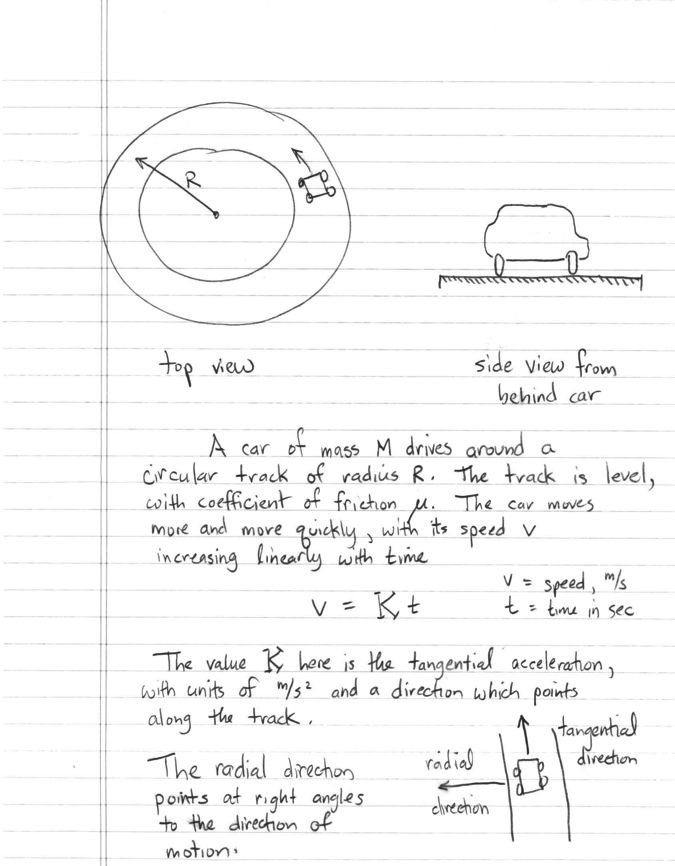 R
top view
side view from
behind car
A car of mass M drives around a
circular track of radius R. The track is level,
with coefficient of friction μ. The car moves
more and more quickly, with its speed v
increasing linearly with time
v = K t
v = speed, m/s
t = time in sec
The value K here is the tangential acceleration,
with units of m/s² and a direction which points
along the track.
The radial direction
points at right angles
to the direction of
motion.
radial
direction
tangential
direction